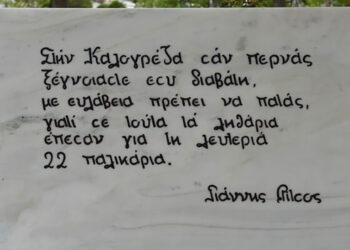 Στην Καλογρέζα σάν περνάς
ξέγνοιαστε εσυ διαβάτη,
με ευλάβεια πρέπει να πατάς,
γιατί σε τούτα τά λιθάρια
έπεσαν για τη λευτεριά
22 παλικάρια.
Γιάννης Ρίτσος